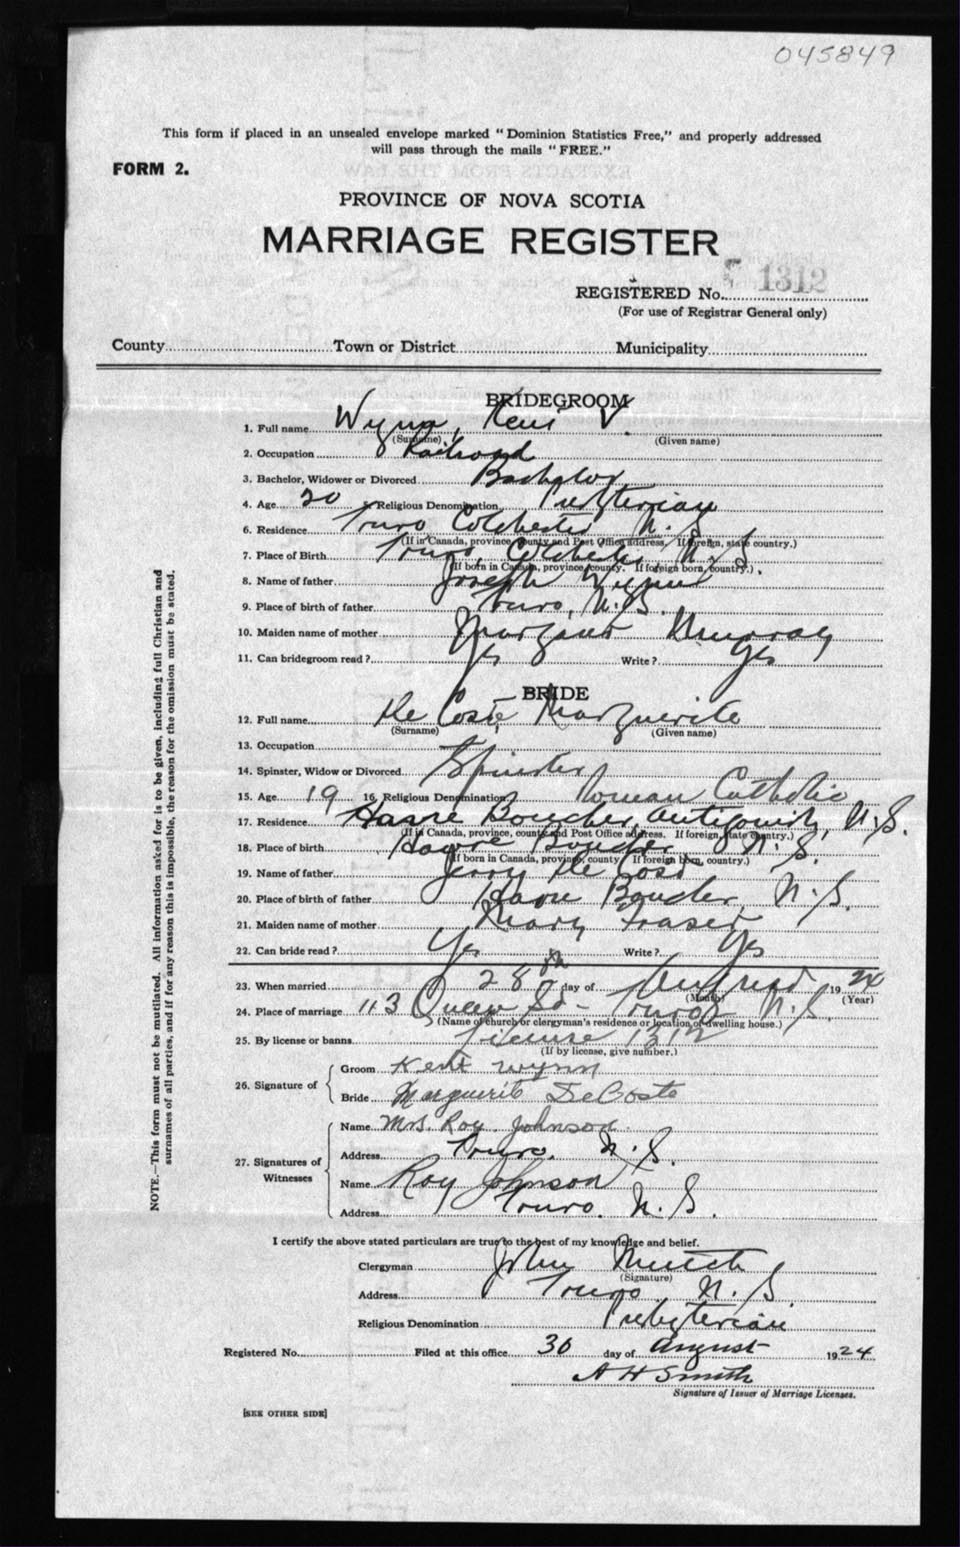 045849
This form if placed in an unsealed envelope marked "Dominion Statistics Free," and properly addressed
will pass through the mails "FREE."
FORM 2.
PROVINCE OF NOVA SCOTIA
MARRIAGE REGISTER
REGISTERED No. 1312
(For use of Registrar General only)
County Town or District Municipality
BRIDEGROOM
1. Full name Wynn, Kent V.
(Surname) (Given name)
2. Occupation Railroad
3. Bachelor, Widower or Divorced Bachelor
4. Age 20 5. Religious Denomination Presbyterian
6. Residence Truro Colchester N. S.
(If in Canada, province, county and Post Office address. If foreign, state country.)
7. Place of Birth Truro, Colchester N. S.
(If born in Canada, province, county. If foreign born, country.)
8. Name of father Joseph Wynn
9. Place of birth of father Truro, N. S.
10. Maiden name of mother Margaret Murray
11. Can bridegroom read? Yes Write? Yes
BRIDE
12. Full name De Coste, Marguerite
(Surname) (Given name)
13. Occupation
14. Spinster, Widow or Divorced Spinster
15. Age 19 16. Religious Denomination Roman Catholic
17. Residence Havre Boucher, Antigonish, N. S.
(If in Canada, province, county and Post Office address. If foreign, state country.)
18. Place of birth Havre Boucher N. S.
(If born in Canada, province, county. If foreign born, country.)
19. Name of father Jerry De Cost
20. Place of birth of father Havre Boucher, N. S.
21. Maiden name of mother Mary Fraser
22. Can bride read? Yes Write? Yes
23. When married 28th day of August 1924
(Month) (Year)
24. Place of marriage 113 Queen St - Truro N. S.
(Name of church or clergyman's residence or location of dwelling house.)
25. By license or banns License 1312
(If by license, give number.)
26. Signature of
Groom Kent Wynn
Bride Marguerite DeCoste
27. Signatures of Witnesses
Name Mrs. Roy Johnson
Address Truro. N. S.
Name Roy Johnson
Address Truro. N. S.
I certify the above stated particulars are true to the best of my knowledge and belief.
Clergyman John
(Signature)
Address Truro N. S.
Religious Denomination Presbyterian
Registered No. Filed at this office 30 day of August 1924
A H Smith
Signature of Issuer of Marriage Licenses.
[SEE OTHER SIDE]
NOTE.—This form must not be mutilated. All information asked for is to be given, including full Christian and
surnames of all parties, and if for any reason this is impossible, the reason for the omission must be stated.